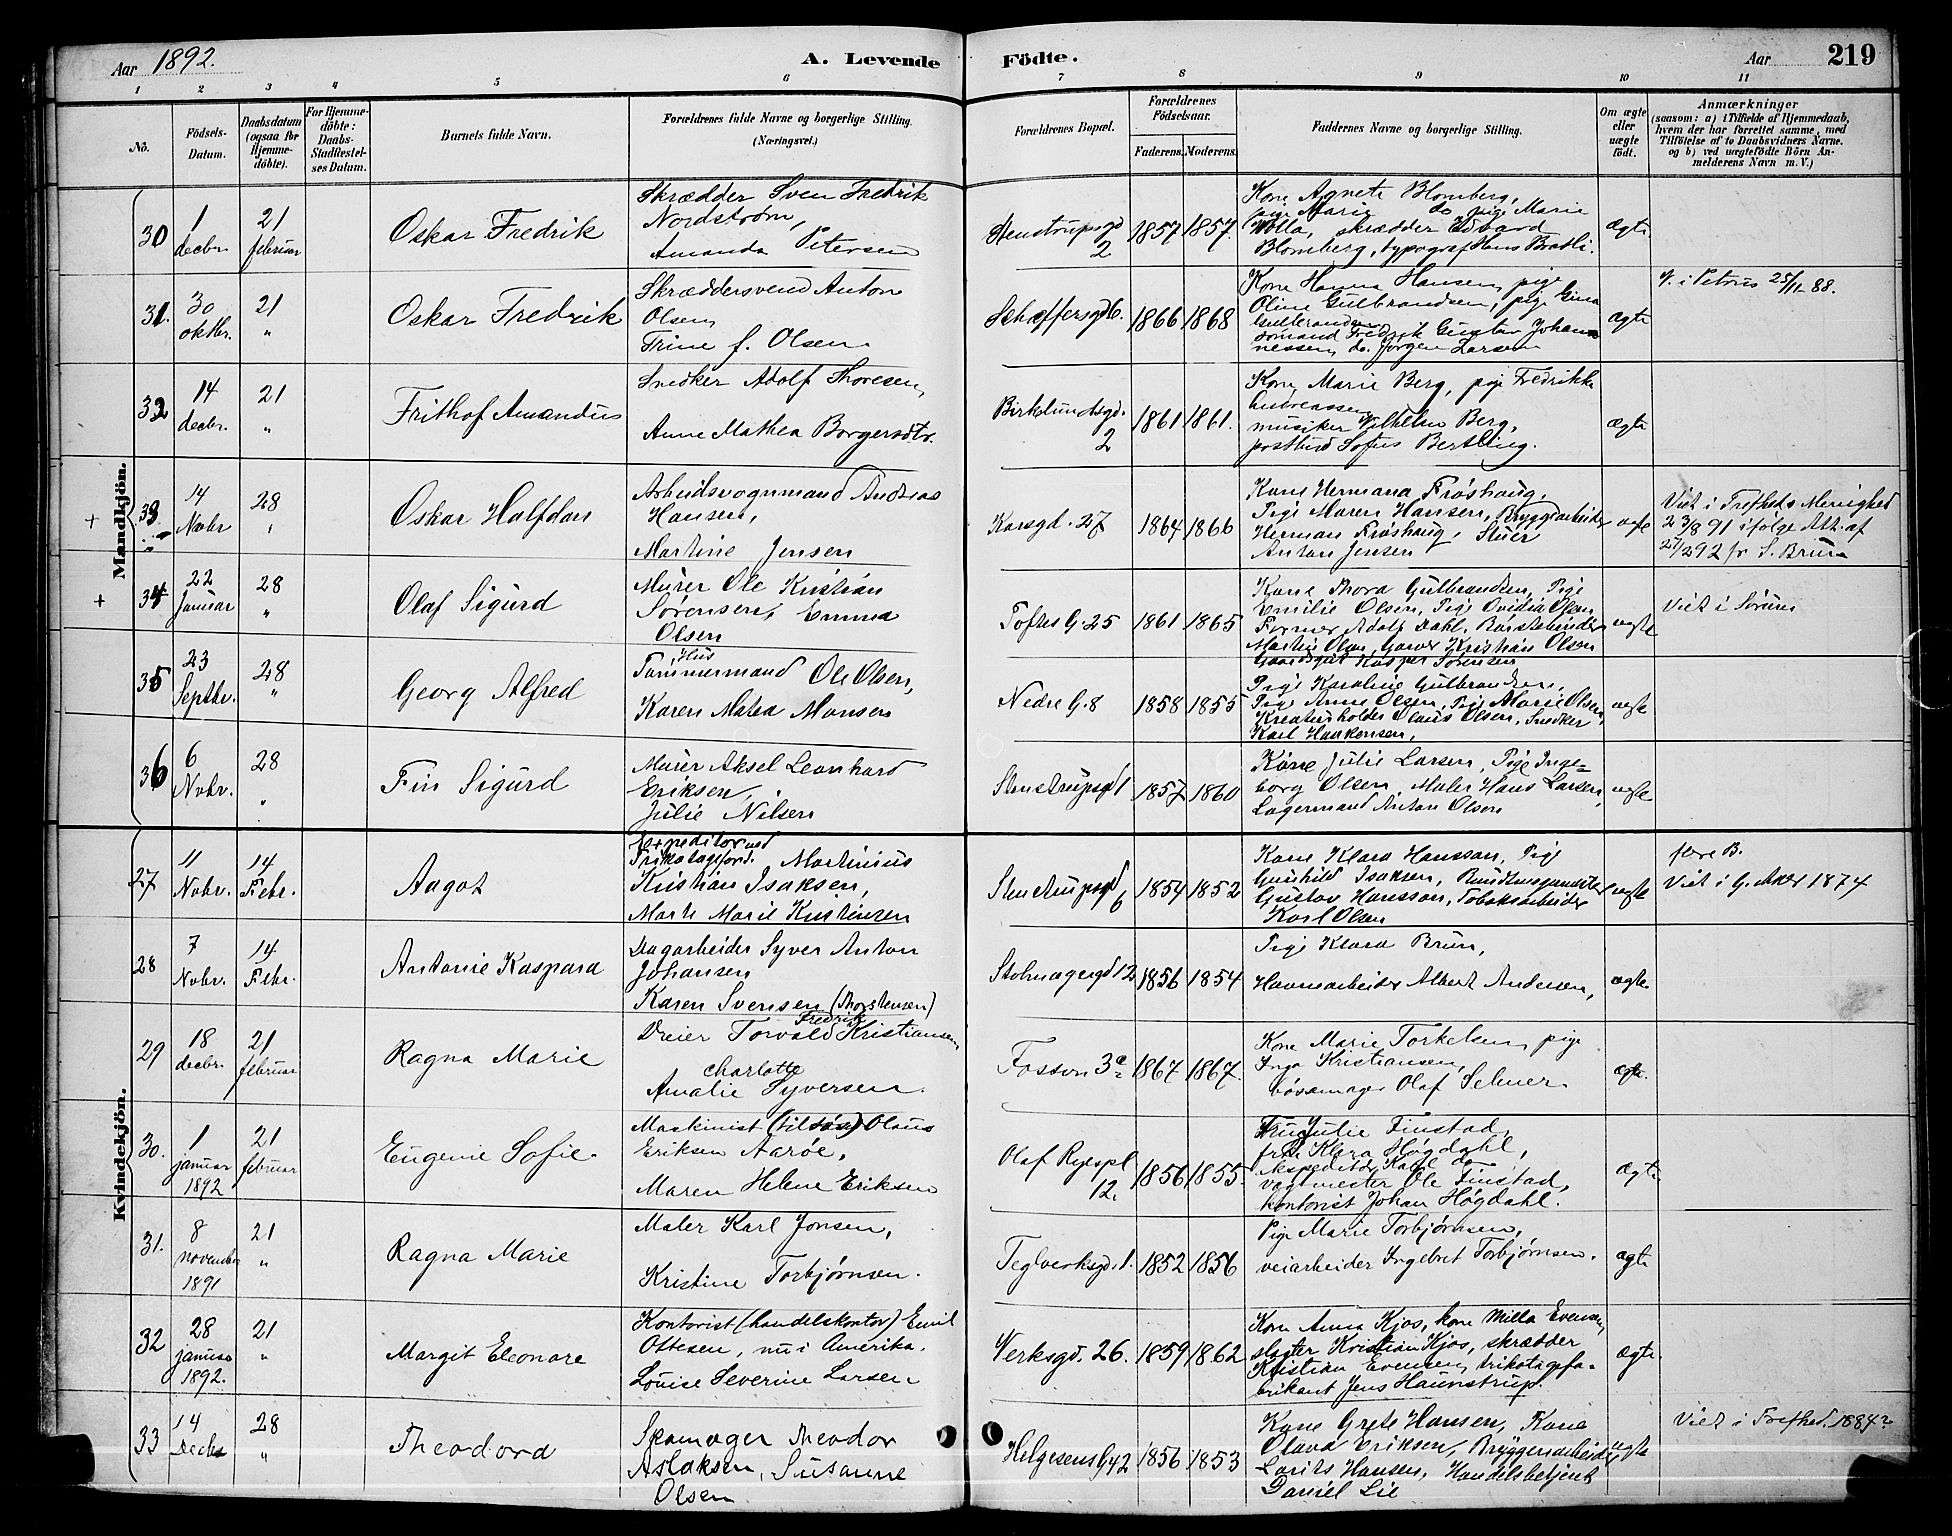 Aar 1892.
A. Levende
Födte.
Aar
219
1 2 3 4 5 6 7 8 9 10 11
No.
Födsels-Datum.
Daabsdatum (ogsaa for Hjemmedöbte).
For Hjemmedöbte: Daabs-Stadfestelses Datum.
Barnets fulde Navn.
Forældrenes fulde Navne og borgerlige Stilling. (Næringsvei.)
Forældrenes Bopæl.
Forældrenes Födselsaar.
Faderens. Moderens.
Faddernes Navne og borgerlige Stilling.
Om ægte eller uægte födt.
Anmærkninger
(saasom: a) i Tilfælde af Hjemmedaab, hvem der har forrettet samme, med Tilföielse af to Daabsvidners Navne. og b) ved uægtefödte Börn Anmelderens Navn m. V.)
Mandkjön.
30 1 decbr. 21 februar
Oskar Fredrik
Skrædder Sven Fredrik
Nordstrøm,
Amanda Petersen
Stenstrupsgd 2
1857 1857.
Kone Agnete Blomberg,
pige Marie do, pige Marie
Wolla, skrædder Edvard
Blomberg, typograf Hans Bratli.
ægte
31. 30 oktbr. 21 "
Oskar Fredrik
Skræddersvend Anton
Olsen,
Trine f. Olsen.
Schæffersgd 6.
1866 1868
Kone Hanna Hansen, pige
Oline Gulbrandsen, pige Gina
Gulbrandsen,
sømand Fredrik Gustav Johan
nessen, do. Jørgen Larsen
ægte
V. i Petrus 25/11 88.
32 14 decbr. 21 "
Frithof Amandus
Snedker Adolf Thoresen,
Anne Mathea Borgersdtr.
Birkelundsgd. 2
1861 1861.
Kone Marie Berg, pige Fredrikke
Andreassen
musiker Vilhelm Berg,
postbud Sofus Bertling.
ægte
+ 33 14 Novbr 28 "
Oskar Halfdan
Arbeidsvognmand Andreas
Hansen,
Martine Jensen
Korsgd. 27
1864 1866
Kone Hermana Frøshaug,
Pige Maren Hansen, Bryggearbeider
Herman Frøshaug, Stuer
Anton Jensen
ægte
Viet i Trefheds Menighed
23/8 91 ifølge Att. af
27/2 92 fr S. Bruun
+ 34 22 Januar 28 "
Olaf Sigurd
Murer Ole Kristian
Sørensen, Emma
Olsen
Toftes G. 25
1861 1865
Kone Thora Gulbrandsen, Pige
Emilie Olsen, Pige Ovidia Olsen
Former Adolf Dahl, Børstebinder
Martin Olsen, Garver Kristian Olsen
Gaardsgut Kasper Sørensen
ægte
Viet i Sørum
35 23 Septbr. 28 "
Georg Alfred
Hus
Tømmermand Ole Olsen,
Karen Matea Monsen
Nedre G. 8
1858 1855
Pige Karoline Gulbrandsen,
Pige Anne Olsen, Pige Marie Olsen,
Kreaturholder Olaus Olsen, Snedker
Karl Haakensen,
ægte
36 6 Novbr. 28 "
Fin Sigurd
Murer Aksel Leonhard
Eriksen,
Julie Nilsen
Stenstrupsgd 1
1857 1860
Kone Julie Larsen, Pige Inge=
borg Olsen, Maler Hans Larsen,
Lagermand Anton Olsen
ægte
Kvindekjön.
27 11 Novbr. 14 Febr.
Aagot
Expeditør ved
Trikotageford. Martinius
Kristian Isaksen,
Marte Marie Kristensen
Stenstrupsgd 6
1854 1852
Kone Klara Hansson, Pige
Gunhild Isaksen,
Gustav Hansson, Tobaksarbeider
Karl Olsen
ægte
flere B.
Viet i G. Aker 1874
28 7 Novbr. 14 Febr.
Antonie Kaspara
Dagarbeider Syver Anton
Johansen
Karen Svensen (Thorstensen)
Stolmagergd 12
1856 1854
Pige Klara Brun,
Havnearbeider Albert Andersen,
ægte
29 18 decbr. 21 februar
Ragna Marie
Fredrik
Dreier Torvald Kristiansen,
Charlotte
Amalie Syversen.
Fossvn 3a
1867 1867.
Kone Marie Torkelsen, pige
Inga Kristiansen,
bøssemager Olaf Selmer.
ægte.
30. 1 januar 1892 21 februar
Eugenie Sofie.
Maskinist (tilsøs) Olaus
Eriksen Aarøe,
Maren Helene Eriksen
Olaf Ryespl 12.
1856 1855.
Fru Julie Finstad,
frk. Klara Høgdahl,
ekspeditør Karl do
vagtmester Ole Finstad,
kontorist Johan Høgdahl.
ægte
31. 8 november 1891 21 "
Ragna Marie
Maler Karl Jonsen,
Kristine Torbjørnsen.
Teglverksgd. 1.
1852 1856
Pige Marie Torbjørnsen,
veiarbeider Ingebret Torbjørnsen.
ægte
32 28 januar 1892. 21 "
Margit Eleonore
Kontorist (handelskontor) Emil
Ottesen, nu i Amerika.
Louise Severine Larsen
Verksgd. 26.
1859 1862
Kone Anna Kjos, kone Milla Evensen,
slagter Kristian Kjos, skrædder
Kristian Evensen, trikotagefa-
brikant Jens Haunstrup.
ægte.
33 14 Decbr 28 "
Theodora
Skomager Theodor
Aslaksen, Susanne
Olsen
Helgesens G 42
1856 1853
Kone Grete Hansen, Kone
Olava Eriksen, Bryggeriarbeider
Lorits Hansen, Handelsbetjent
Daniel Lie
ægte
Viet i Trefhed. 1884?